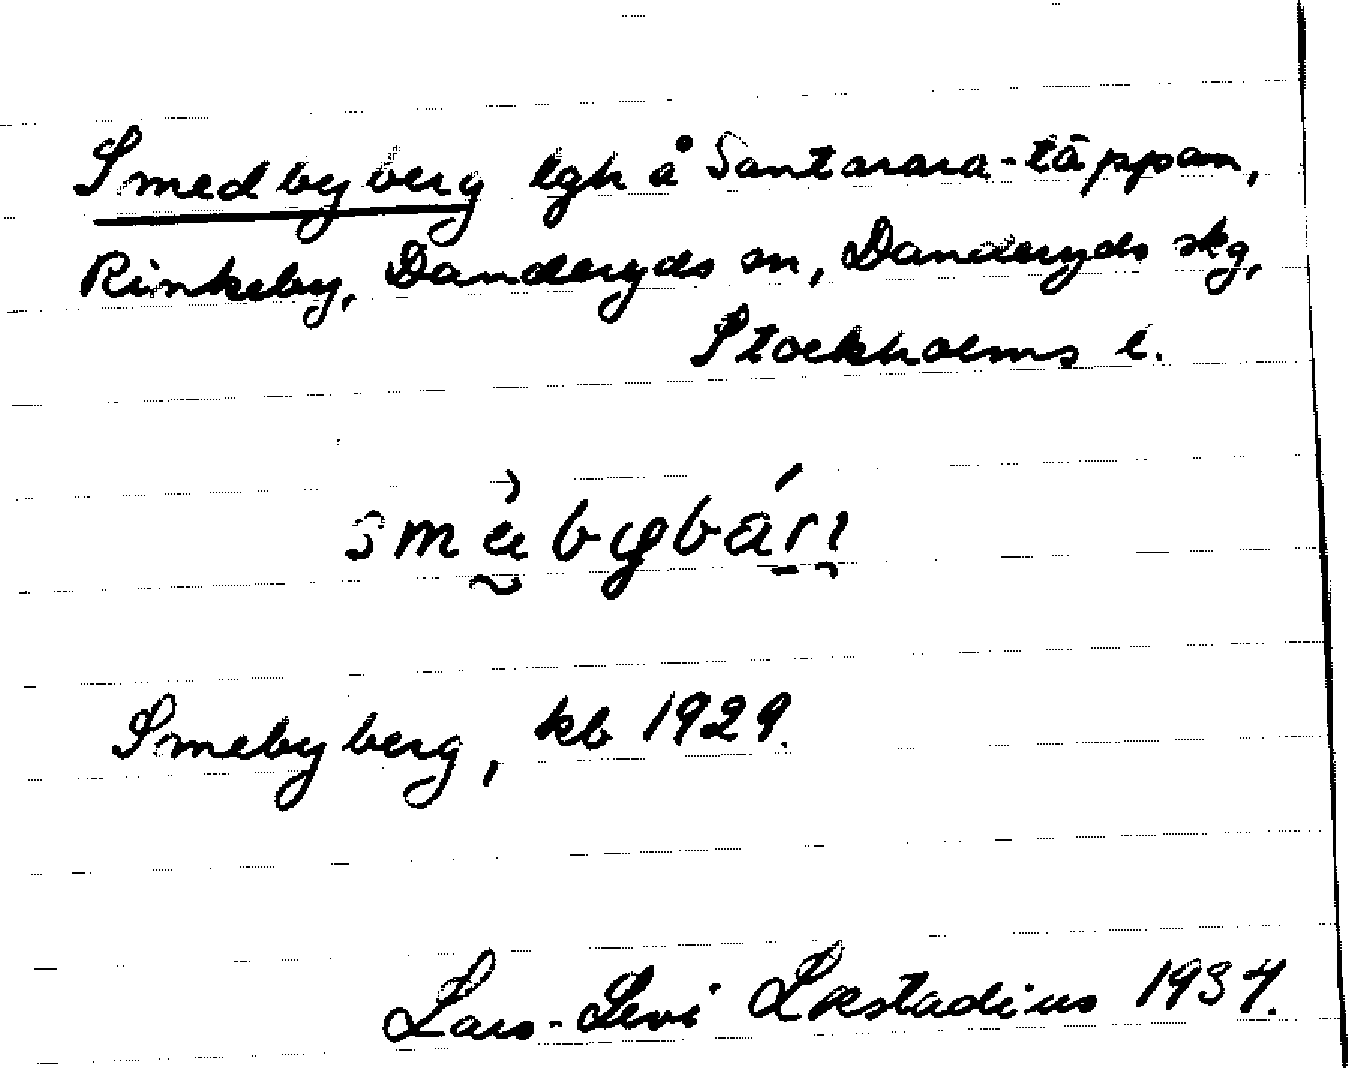 Smedbyberg lgh å Santarara-täppan,
Rinkeby, Danderyds sn, Danderyds skg,
Stockholms l.
Smebyberg, kb 1929.
Lars-Levi Læstadius 1937.